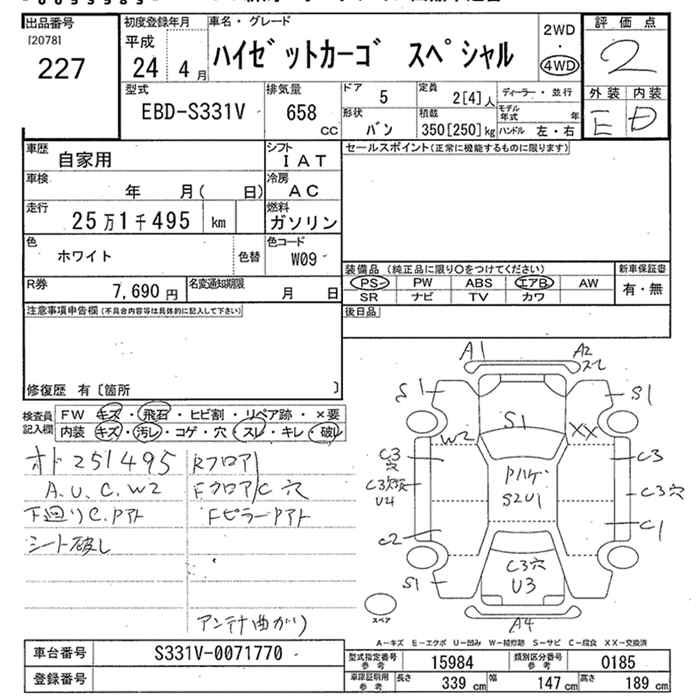 出品番号
[2078]
227
初度登録年月
平成
24 4 月
車名・グレード
ハイゼットカーゴ スペシャル
2WD
・
4WD
評価点
2
外装 内装
E D
型式
EBD-S331V
排気量
658
cc
ドア 5
形状
バン
定員
2[4]人
積載
350[250]kg
ディーラー・並行
モデル年式 年
ハンドル 左・右
車歴
自家用
シフト
IAT
車検
年 月( 日)
冷房
AC
走行
25万1千495 km
燃料
ガソリン
色
ホワイト
色替
色コード
W09
R券
7,690 円
名変通知期限
月 日
セールスポイント(正常に機能するものに限ります)
装備品 (純正品に限り○をつけてください)
PS PW ABS エアB AW
SR ナビ TV カワ
新車保証書
有・無
後日品
注意事項申告欄(不具合内容等は具体的に記入して下さい)
修復歴 有〔箇所 〕
検査員
記入欄
FW キズ・飛石・ヒビ割・リペア跡・×要
内装 キズ・汚レ・コゲ・穴・スレ・キレ・破レ
オド251495
A.U.C.W2
下廻りC.Pアト
シート破し
Rフロア
Fフロア/C穴
FピラーPアト
アンテナ曲がり
A1
A2
S1
S1
S1
W2
XX
C3
穴
C3
U4
C2
S1
Pハゲ
S2U1
C3
C3穴
C1
C3穴
U3
A4
スペア
A-キズ E-エクボ U-凹み W-補修跡 S-サビ C-腐食 XX-交換済
車台番号
S331V-0071770
登録番号
型式指定番号
参考
15984
類別区分番号
参考
0185
車庫証明用
参考
長さ
339 cm
幅
147 cm
高さ
189 cm